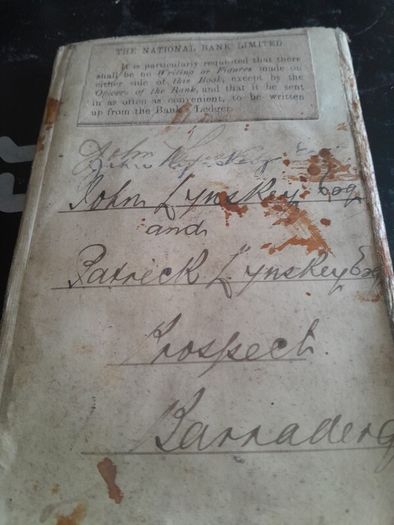 THE NATIONAL BANK LIMITED
It is particularly requested that there
shall be no Writing or Figures made on
either side of this Book, except by the
Officers of the Bank, and that it be sent
in as often as convenient, to be written
up from the Bank's Ledger.
John Lynskey
John Lynskey Esq
and
Patrick Lynskey Esq
Prospect
Barnaderg